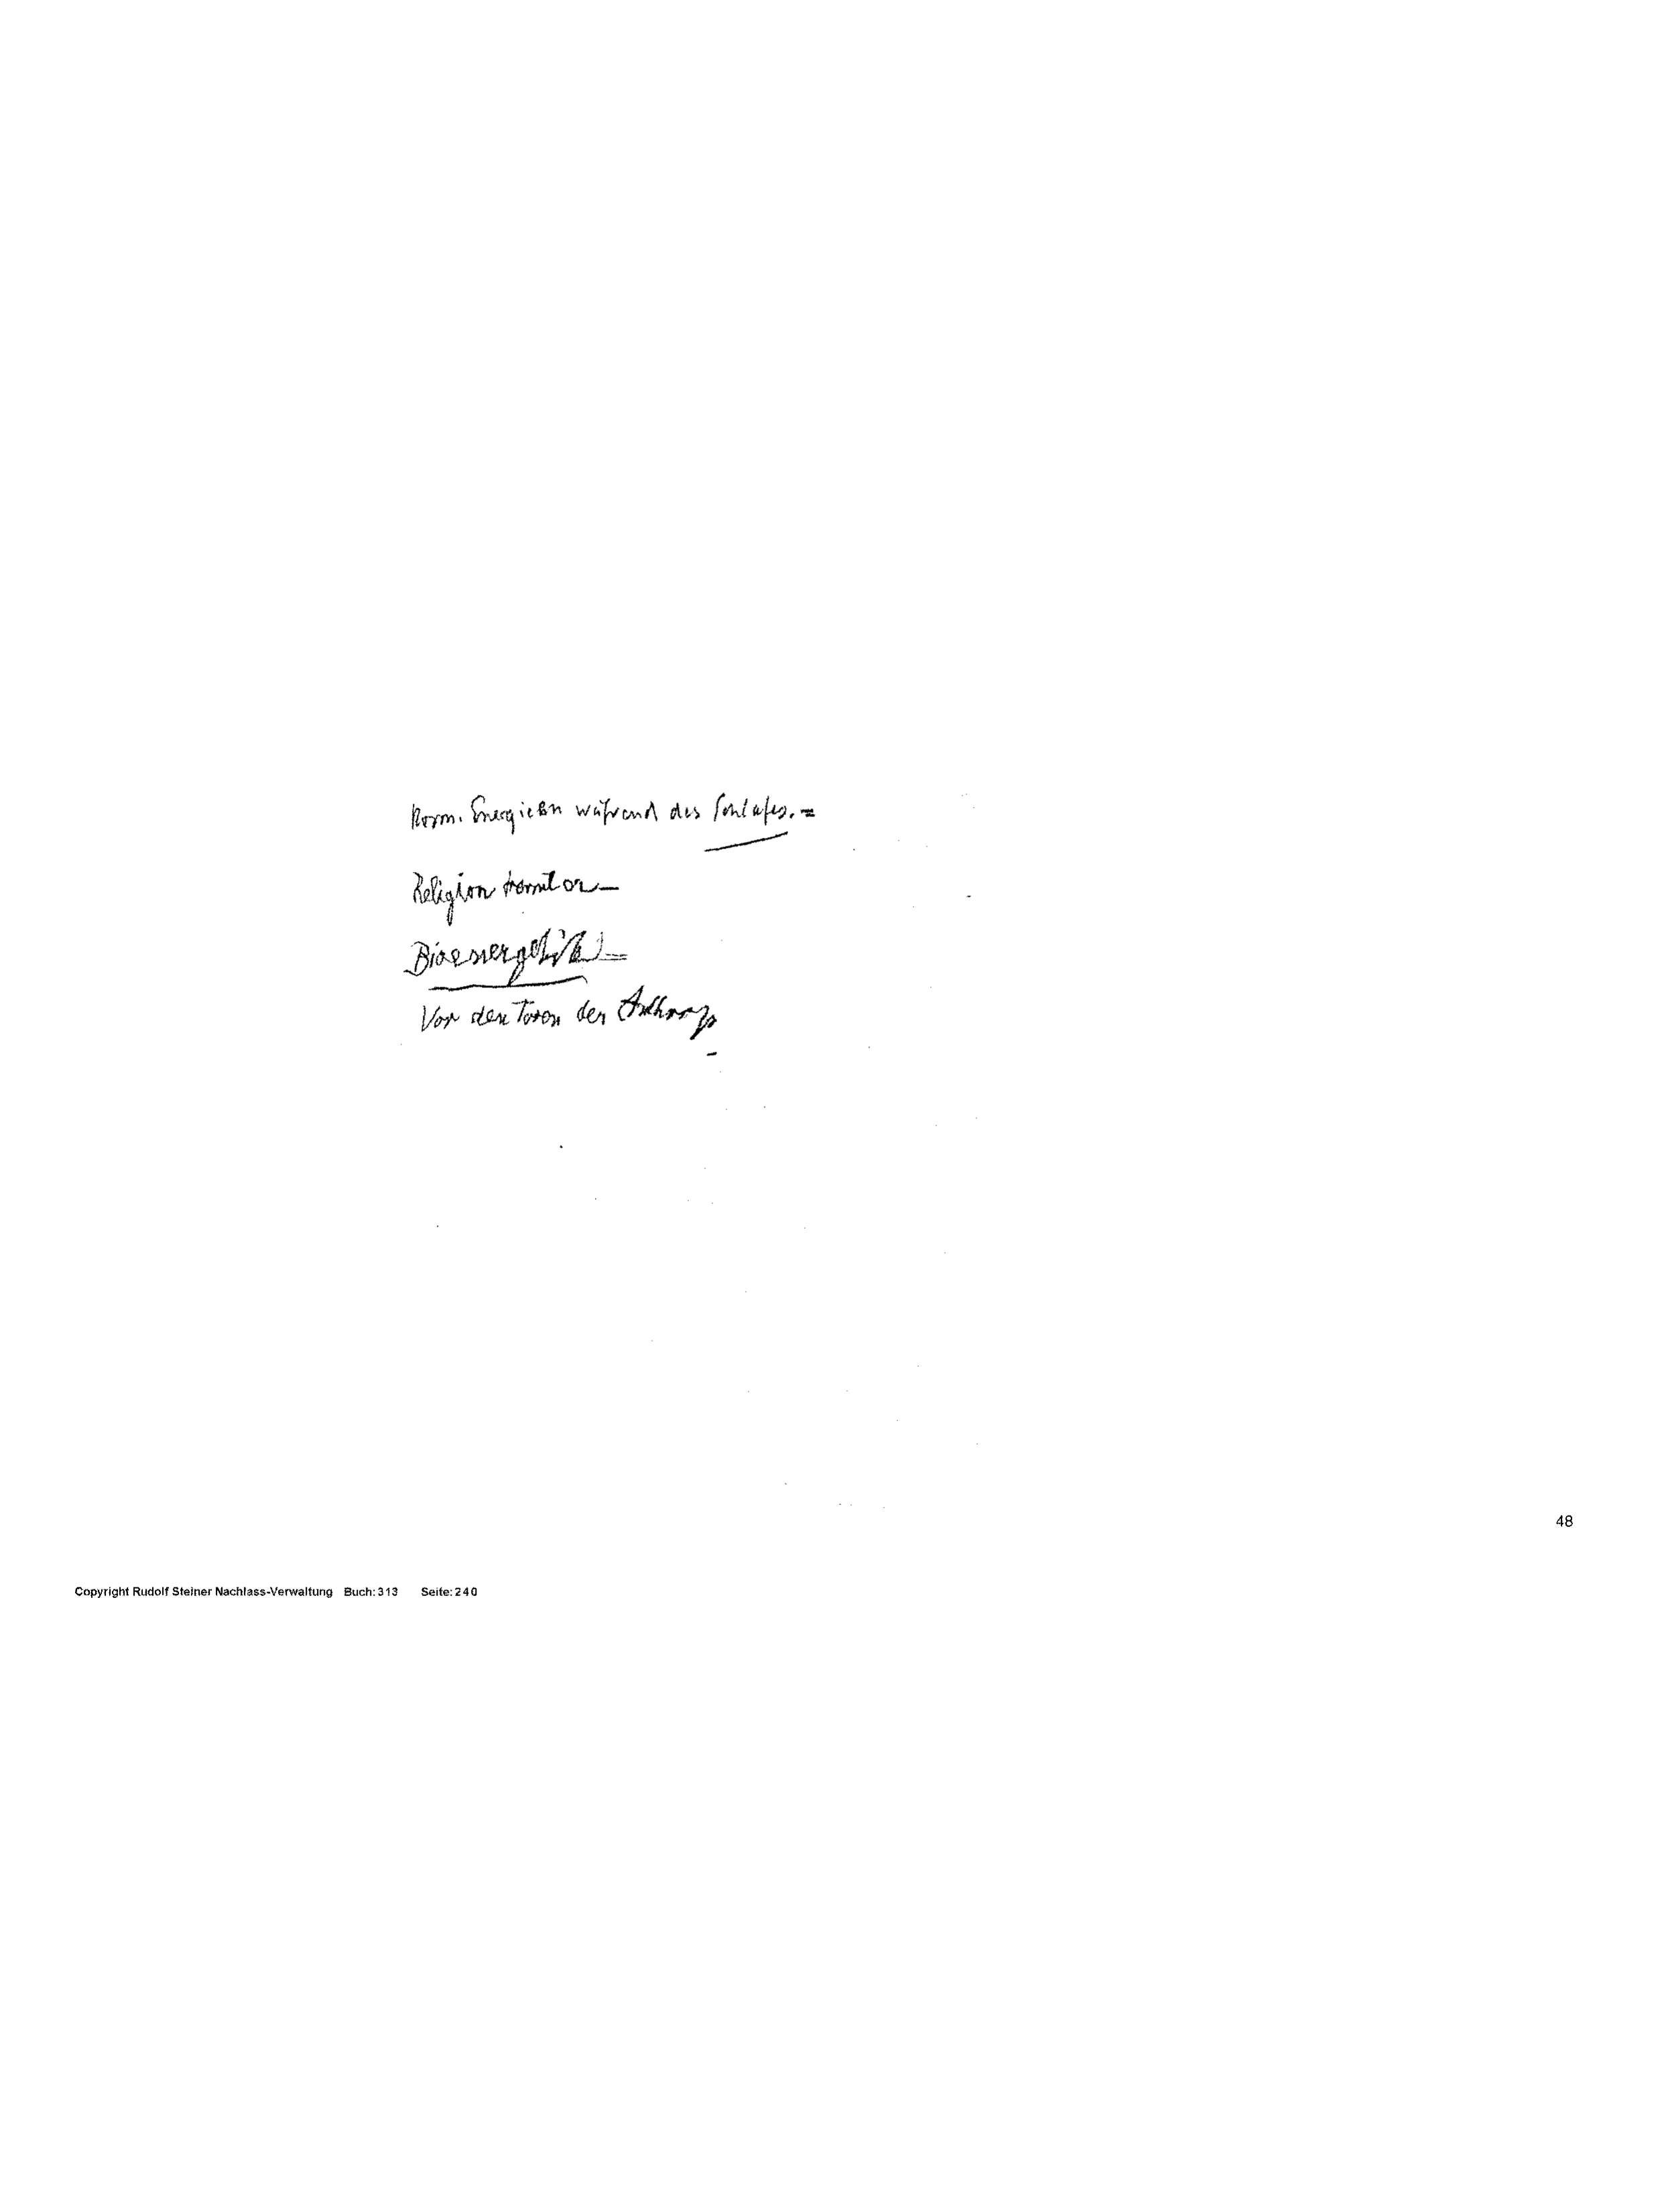 Norm. Energieen während des Schlafes. =
Religion
Bioenergetik =
Vor den Toren der Anthrop
48
Copyright Rudolf Steiner Nachlass-Verwaltung Buch: 313 Seite: 240